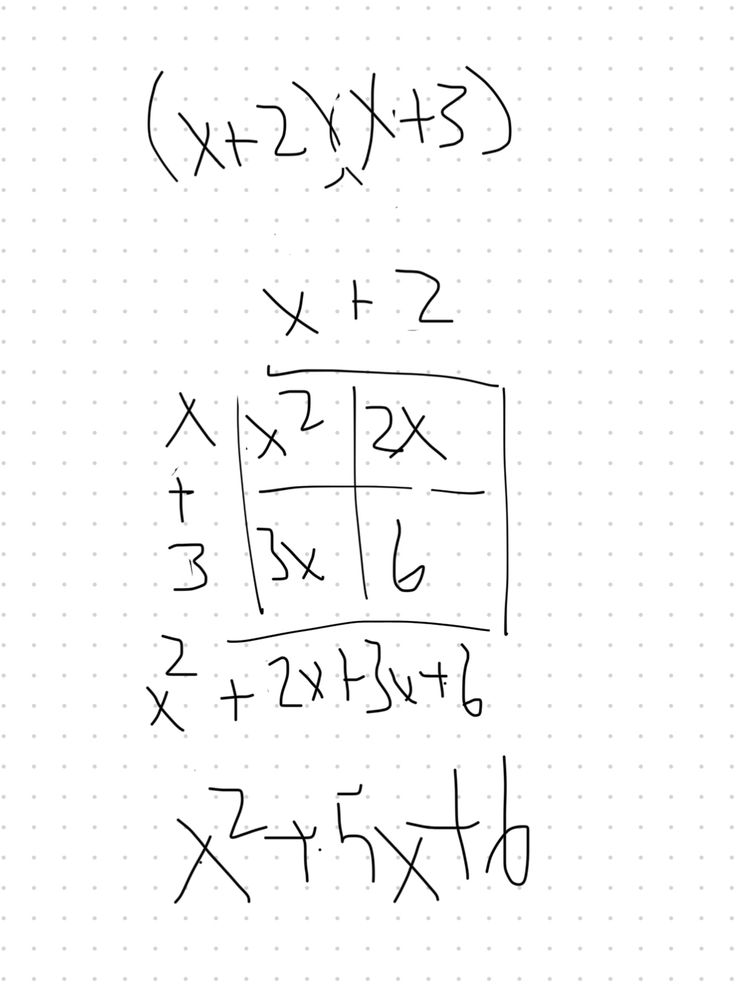 (x+2)(x+3)
x + 2
x x² 2x
+
3 3x 6
x² + 2x+3x+6
x²+5x+6